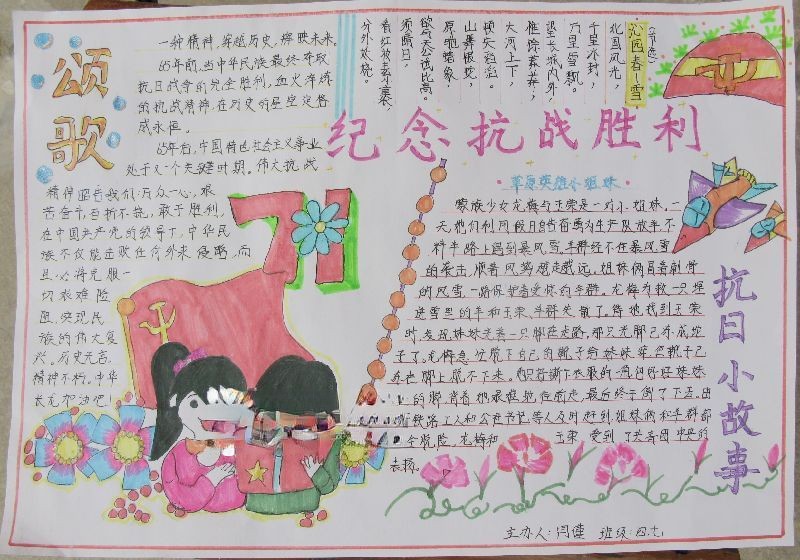 颂歌
一种精神,穿越历史,辉映未来。
65年前,当中华民族最终夺取
抗日战争的完全胜利,血火淬炼
的抗战精神,在历史的星空定格
成永恒。
65年后,中国特色社会主义事业
处于又一个关键时期。伟大抗战
精神昭告我们:万众一心,艰
苦奋斗,百折不挠,敢于胜利,
在中国共产党的领导下,中华民
族不仅能击败任何外来侵略,而
且必将克服一
切艰难险
阻,实现民
族的伟大复
兴。历史无言,
精神不朽。中华
长龙加油吧!
71
沁园春·雪
(节选)
北国风光
千里冰封,
万里雪飘。
望长城内外,
惟馀莽莽,
大河上下,
顿失滔滔。
山舞银蛇,
原驰蜡象,
欲与天公试比高。
须晴日,
看红装素裹,
分外妖娆。
纪念抗战胜利
·草原英雄小姐妹·
蒙族少女龙梅与玉荣是一对小姐妹,一
天他们利用假日自告奋勇为生产队放羊,不
料半路上遇到暴风雪。羊群经不住暴风雪
的袭击,顺着风势越走越远,姐妹俩冒着刺骨
的风雪,一路保护着受惊的羊群。龙梅为救一只埋
进雪里的羊和玉荣、羊群失散了。待她找到玉荣
时,发现妹妹光着一只脚在走路,那只光脚已冻成坨
子了。龙梅急忙脱下自己的靴子给妹妹穿,但靴子已
冻在脚上脱不下来。
的脚,背着她艰难地往前走,最后终于倒了下去。由
铁路工人和公社书记等人及时赶到,姐妹俩和羊群都
全脱险。龙梅和
玉荣,受到了共青团中央的
表扬。
抗日小故事
主办人:闫瑾 班级:四.七